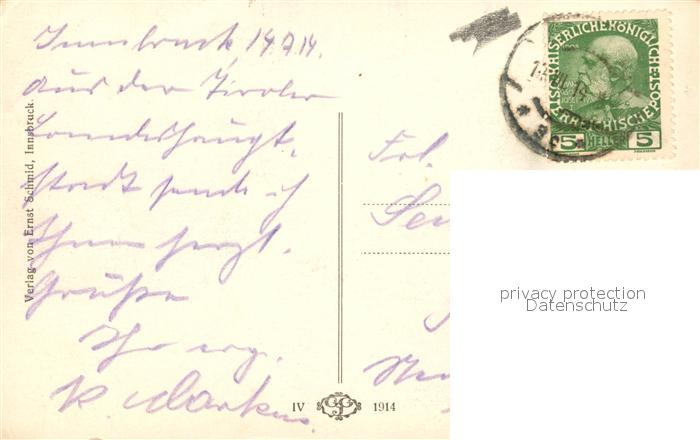 Innsbruck 14.7.14.
Aus der Tiroler
Landeshaupt-
stadt sende ich
Ihnen herzl.
Grüße
Ihr erg.
K. Markus.
Verlag von Ernst Schmid, Innsbruck.
IV 1914
Frl.
KAISERLICHE KÖNIGLICHE
ÖSTERREICHISCHE POST
5 HELLER 5
privacy protection
Datenschutz